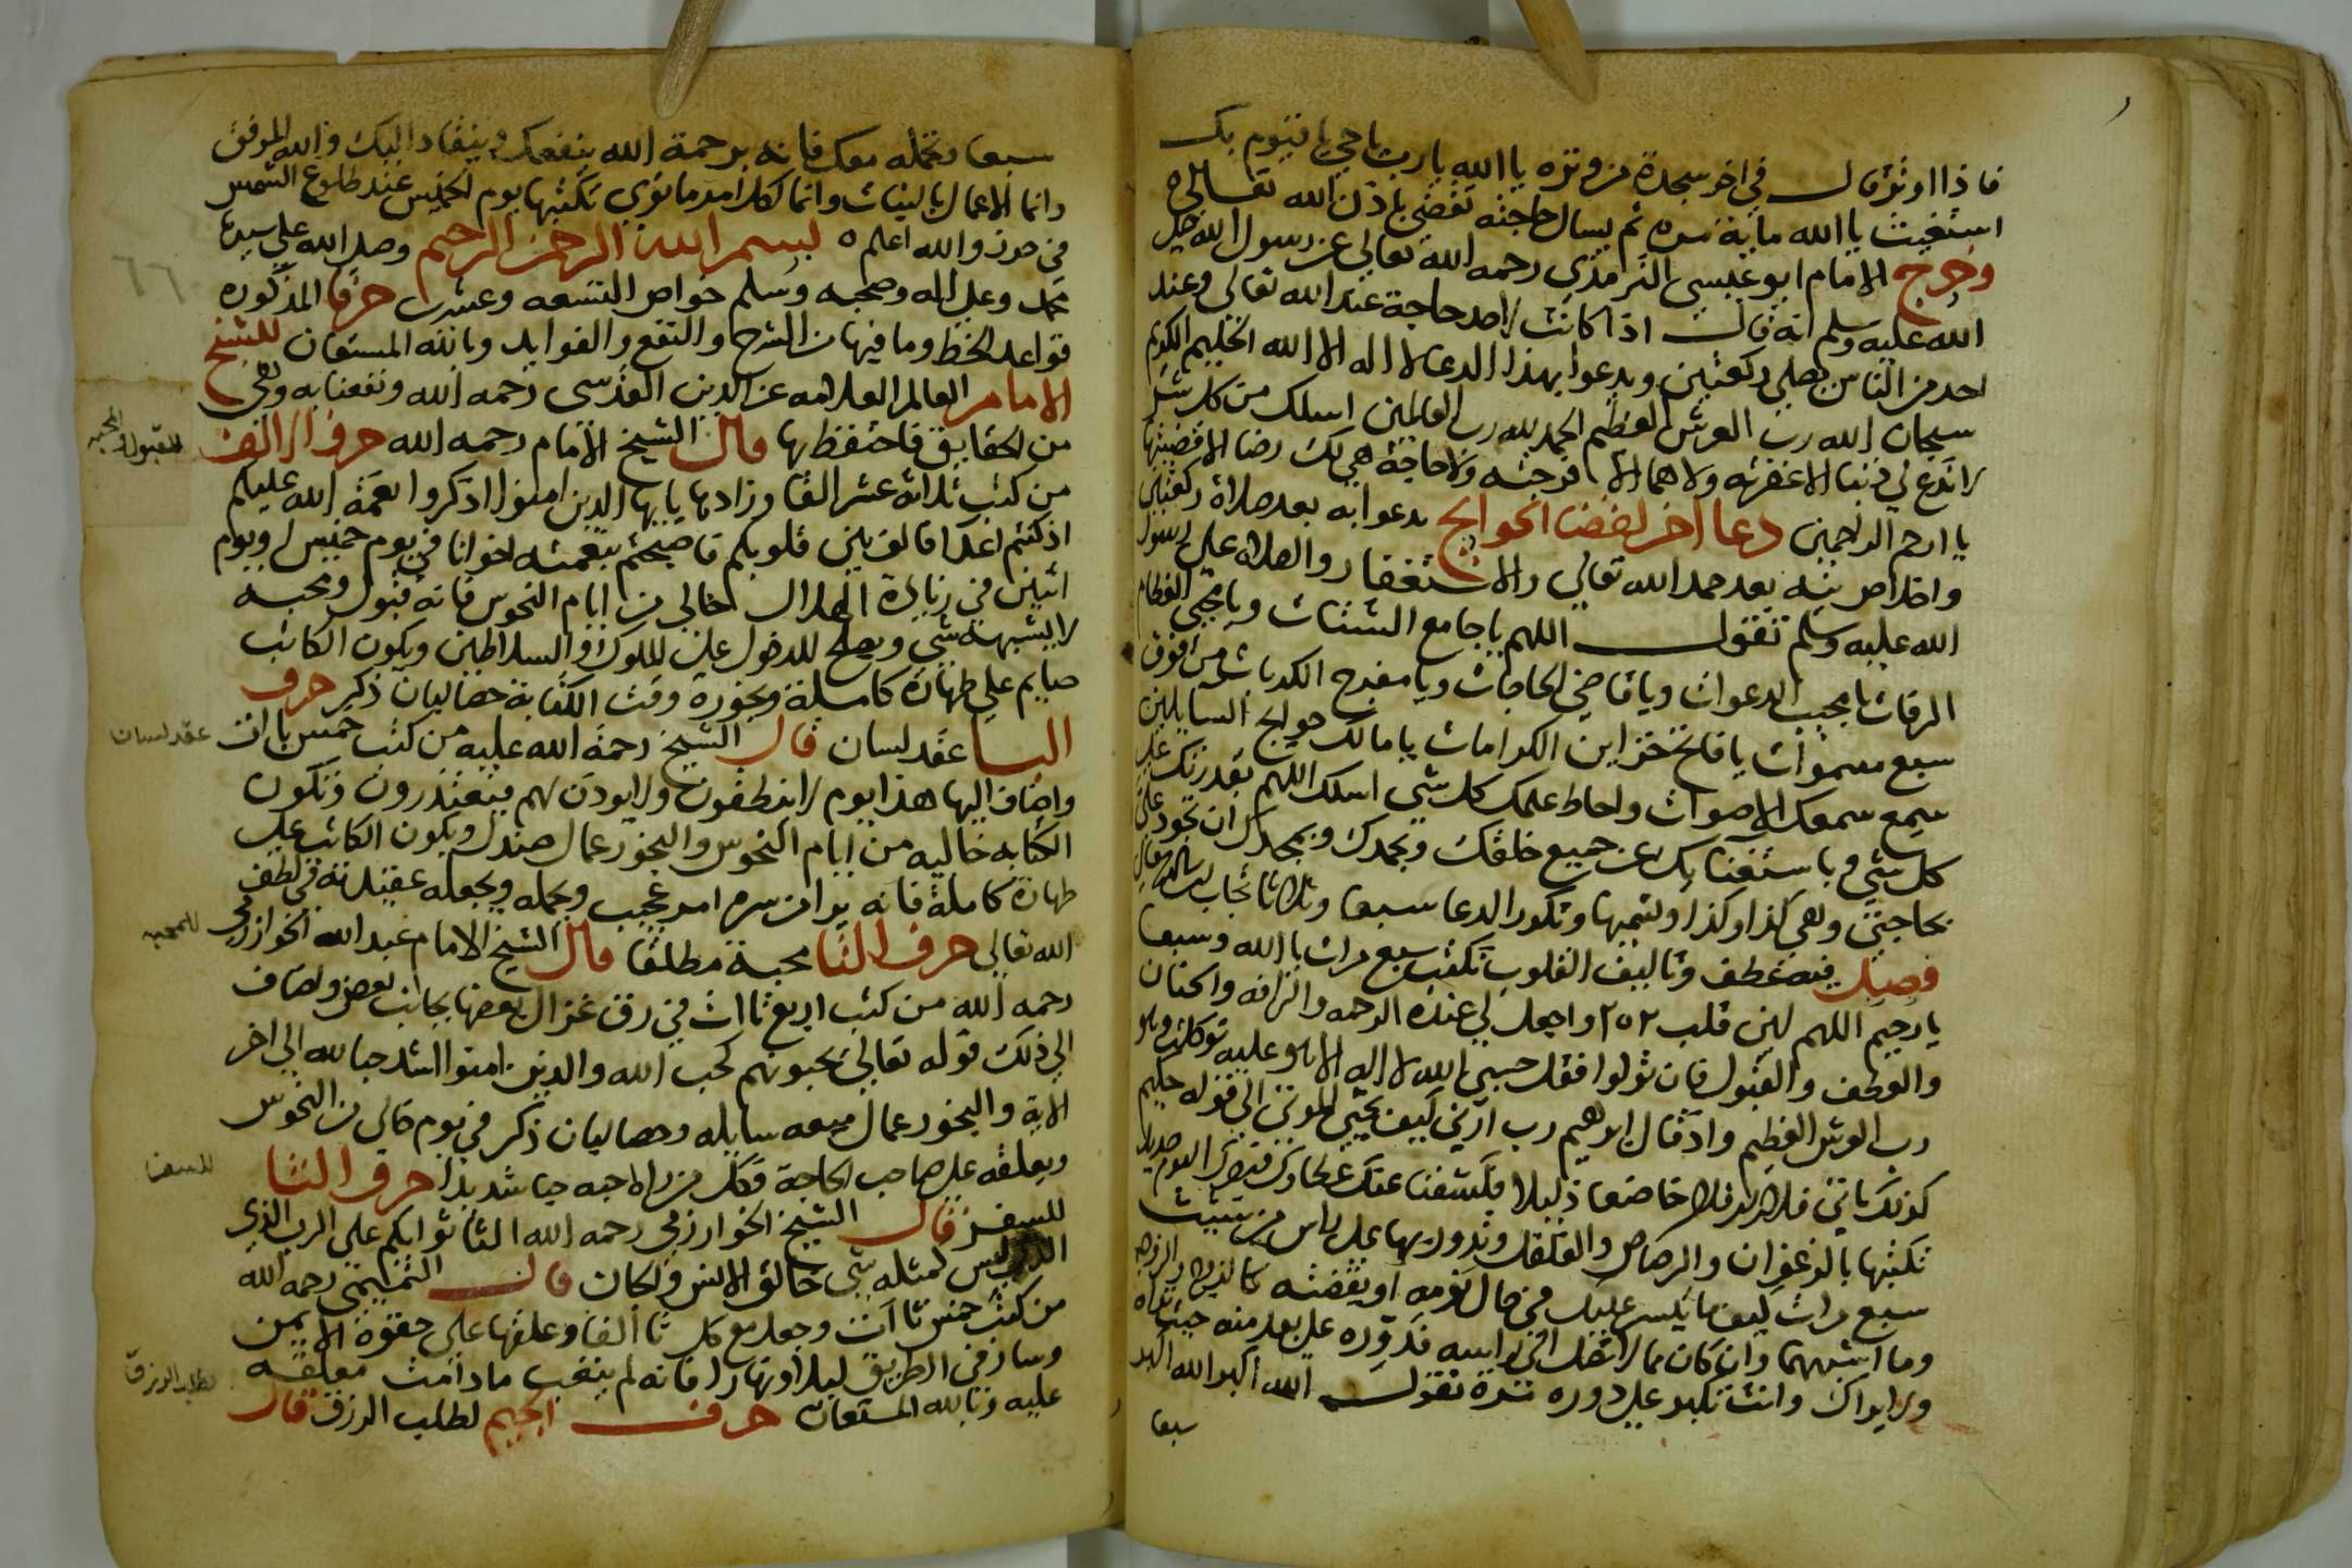 فاذا اوتر قال في اخر سجدة من وتره يا الله يا رب يا حي يا قيوم بك
استغيث يا الله ماية مره ثم يسال حاجته تقضي باذن الله تعالي
وخرج الامام ابو عيسي الترمذي رحمه الله تعالي عن رسول الله صلي
الله عليه وسلم انه قال اذا كانت لاحد حاجة عند الله تعالي وعند
احد من الناس يصلي ركعتين ويدعوا بهذا الدعا لا اله الا الله الحليم الكريم
سبحان الله رب العرش العظيم الحمد لله رب العالمين اسلك من كل
لا تدع لي ذنبا الا غفرته ولا هما الا فرجته ولا حاجة هي لك رضا الا قضيتها
يا ارحم الراحمين دعا اخر لقضا الحوايج يدعوا به بعد صلاة ركعتين
واخلاص نيه بعد حمد الله تعالي والاستغفار والصلاه علي رسول
الله عليه وسلم تقول اللهم يا جامع الشتات ويا محيي العظام
الرفات يا مجيب الدعوات ويا قاضي الحاجات ويا مفرج الكربات من فوق
سبع سموات يا فاتح خزاين الكرامات يا مالك حوايج السايلين
سمع سمعك الاصوات واحاط علمك كل شي اسلك اللهم بقدرتك علي
كل شي وباستغنايك عن جميع خلقك وبحمدك وبمجدك ان تجود علي
بحاجتي وهي كذا وكذا وتسميها وتكرر الدعا سبعا وثلاثا تجاب
فصل فيه عطف وتاليف القلوب تكتب سبع مرات يا الله وسبعا
يا رحيم اللهم لين قلب ٢٥٢ واجعل لي عنده الرحمه والرافه والحنان
والعطف والقبول فان تولوا فقل حسبي الله لا اله الا هو عليه توكلت وهو
رب العرش العظيم واذ قال ابراهيم رب ارني كيف تحيي الموتي الي قوله حكيم
كذلك ياتي فلان بن فلان خاضعا ذليلا فكشفنا عنك غطاوك فبصرك اليوم حديد
تكتبها بالزعفران والرصاص والفلفل وتدور بها علي راس من شيت
سبع مرات كيف ما يكسر عليك في حال نومه او يقضته
وما اشبههما وان كان مما لا تصل الي راسه فدوره علي بعد منه حيث تراه
ولا يراك وانت تكبر علي دوره مرة تقول الله اكبر الله اكبر
سبعا
سبعا وتحمله معك فانه برحمة الله ينفعك وينقاد اليك والله الموفق
وانما الاعمال بالنيات وانما لكل امرء ما نوي تكتبها يوم الخميس عند طلوع الشمس
في حرز والله اعلم ٥ بسم الله الرحمن الرحيم وصلي الله علي سيدنا
محمد وعلي اله وصحبه وسلم خواص التسعه وعشرين حرفا المذكوره
قواعد الخط وما فيها من الشرح والنفع والفوايد وبالله المستعان للشيخ
الامام العالم العلامه عز الدين المقدسي رحمه الله ونفعنا به وهي
من الحقايق فاحتفظ بها قال الشيخ الامام رحمه الله حرف الالف
للقبول والمحبه
من كتب ثلاثة عشر الفا وزادها يا ايها الذين امنوا اذكروا نعمة الله عليكم
اذ كنتم اعدا فالف بين قلوبكم فاصبحتم بنعمته اخوانا في يوم خميس او يوم
اثنين في زيادة الهلال الخالي من ايام النحوس فانه قبول ومحبه
لا يشبهه شي ويصلح للدخول علي الملوك والسلاطين ويكون الكاتب
صايم علي طهارة كاملة وبخوره وقت الكتابة حصالبان ذكر حرف
البا عقد لسان قال الشيخ رحمة الله عليه من كتب خمس باات
عقد لسان
واضاف اليها هذا يوم لا ينطقون ولا يوذن لهم فيعتذرون وتكون
الكتابه خاليه من ايام النحوس والبخور عمال صندل ويكون الكاتب علي
طهارة كاملة فانه يرا من سره امر عجيب وحمله ويجعله عقيدته في لطف
الله تعالي حرف التا محبة مطلقا قال الشيخ الامام عبد الله الخوارزمي
للمحبه
رحمه الله من كتب اربع تاات في رق غزال بعضها بجانب بعض واضاف
الي ذلك قوله تعالي يحبونهم كحب الله والذين امنوا اشد حبا لله الي اخر
الاية والبخور عمال ميعه سايله وحصالبان ذكر في يوم خالي من النحوس
ويعلقه علي صاحب الحاجة فكل من راه احبه حبا شديدا حرف الثا
للسفر
للسفر قال الشيخ الخوارزمي رحمه الله الثا ثوابكم علي الرب الذي
ليس كمثله شي خالق الانس والجان قال التميمي رحمه الله
من كتب خمس ثاات وجعل مع كل ثا ألفا وعلقها علي حقوه الايمن
وسار في الطريق ليلا او نهارا فانه لم يتعب ما دامت معلقه
عليه وبالله المستعان حرف الجيم لطلب الرزق قال
لطلب الرزق